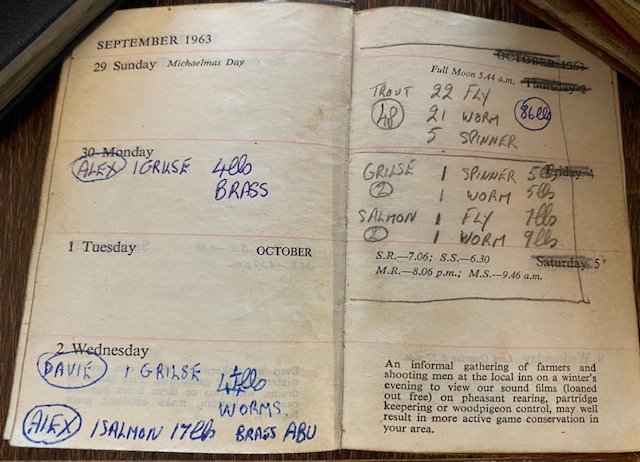 SEPTEMBER 1963
29 Sunday Michaelmas Day
30 Monday
ALEX 1 GRILSE 4lbs
BRASS
1 Tuesday OCTOBER
2 Wednesday
DAVIE 1 GRILSE 4½lbs
WORMS
ALEX 1 SALMON 17lb BRASS ABU
OCTOBER 1963
Full Moon 5.44 a.m. Thursday 3
TROUT 22 FLY
48 21 WORM 86lb
5 SPINNER
Friday 4
GRILSE 1 SPINNER 5lb
2 1 WORM 5lb
SALMON 1 FLY 7lb
2 1 WORM 9lb
S.R.—7.06; S.S.—6.30 Saturday 5
M.R.—8.06 p.m.; M.S.—9.46 a.m.
An informal gathering of farmers and
shooting men at the local inn on a winter's
evening to view our sound films (loaned
out free) on pheasant rearing, partridge
keepering or woodpigeon control, may well
result in more active game conservation in
your area.